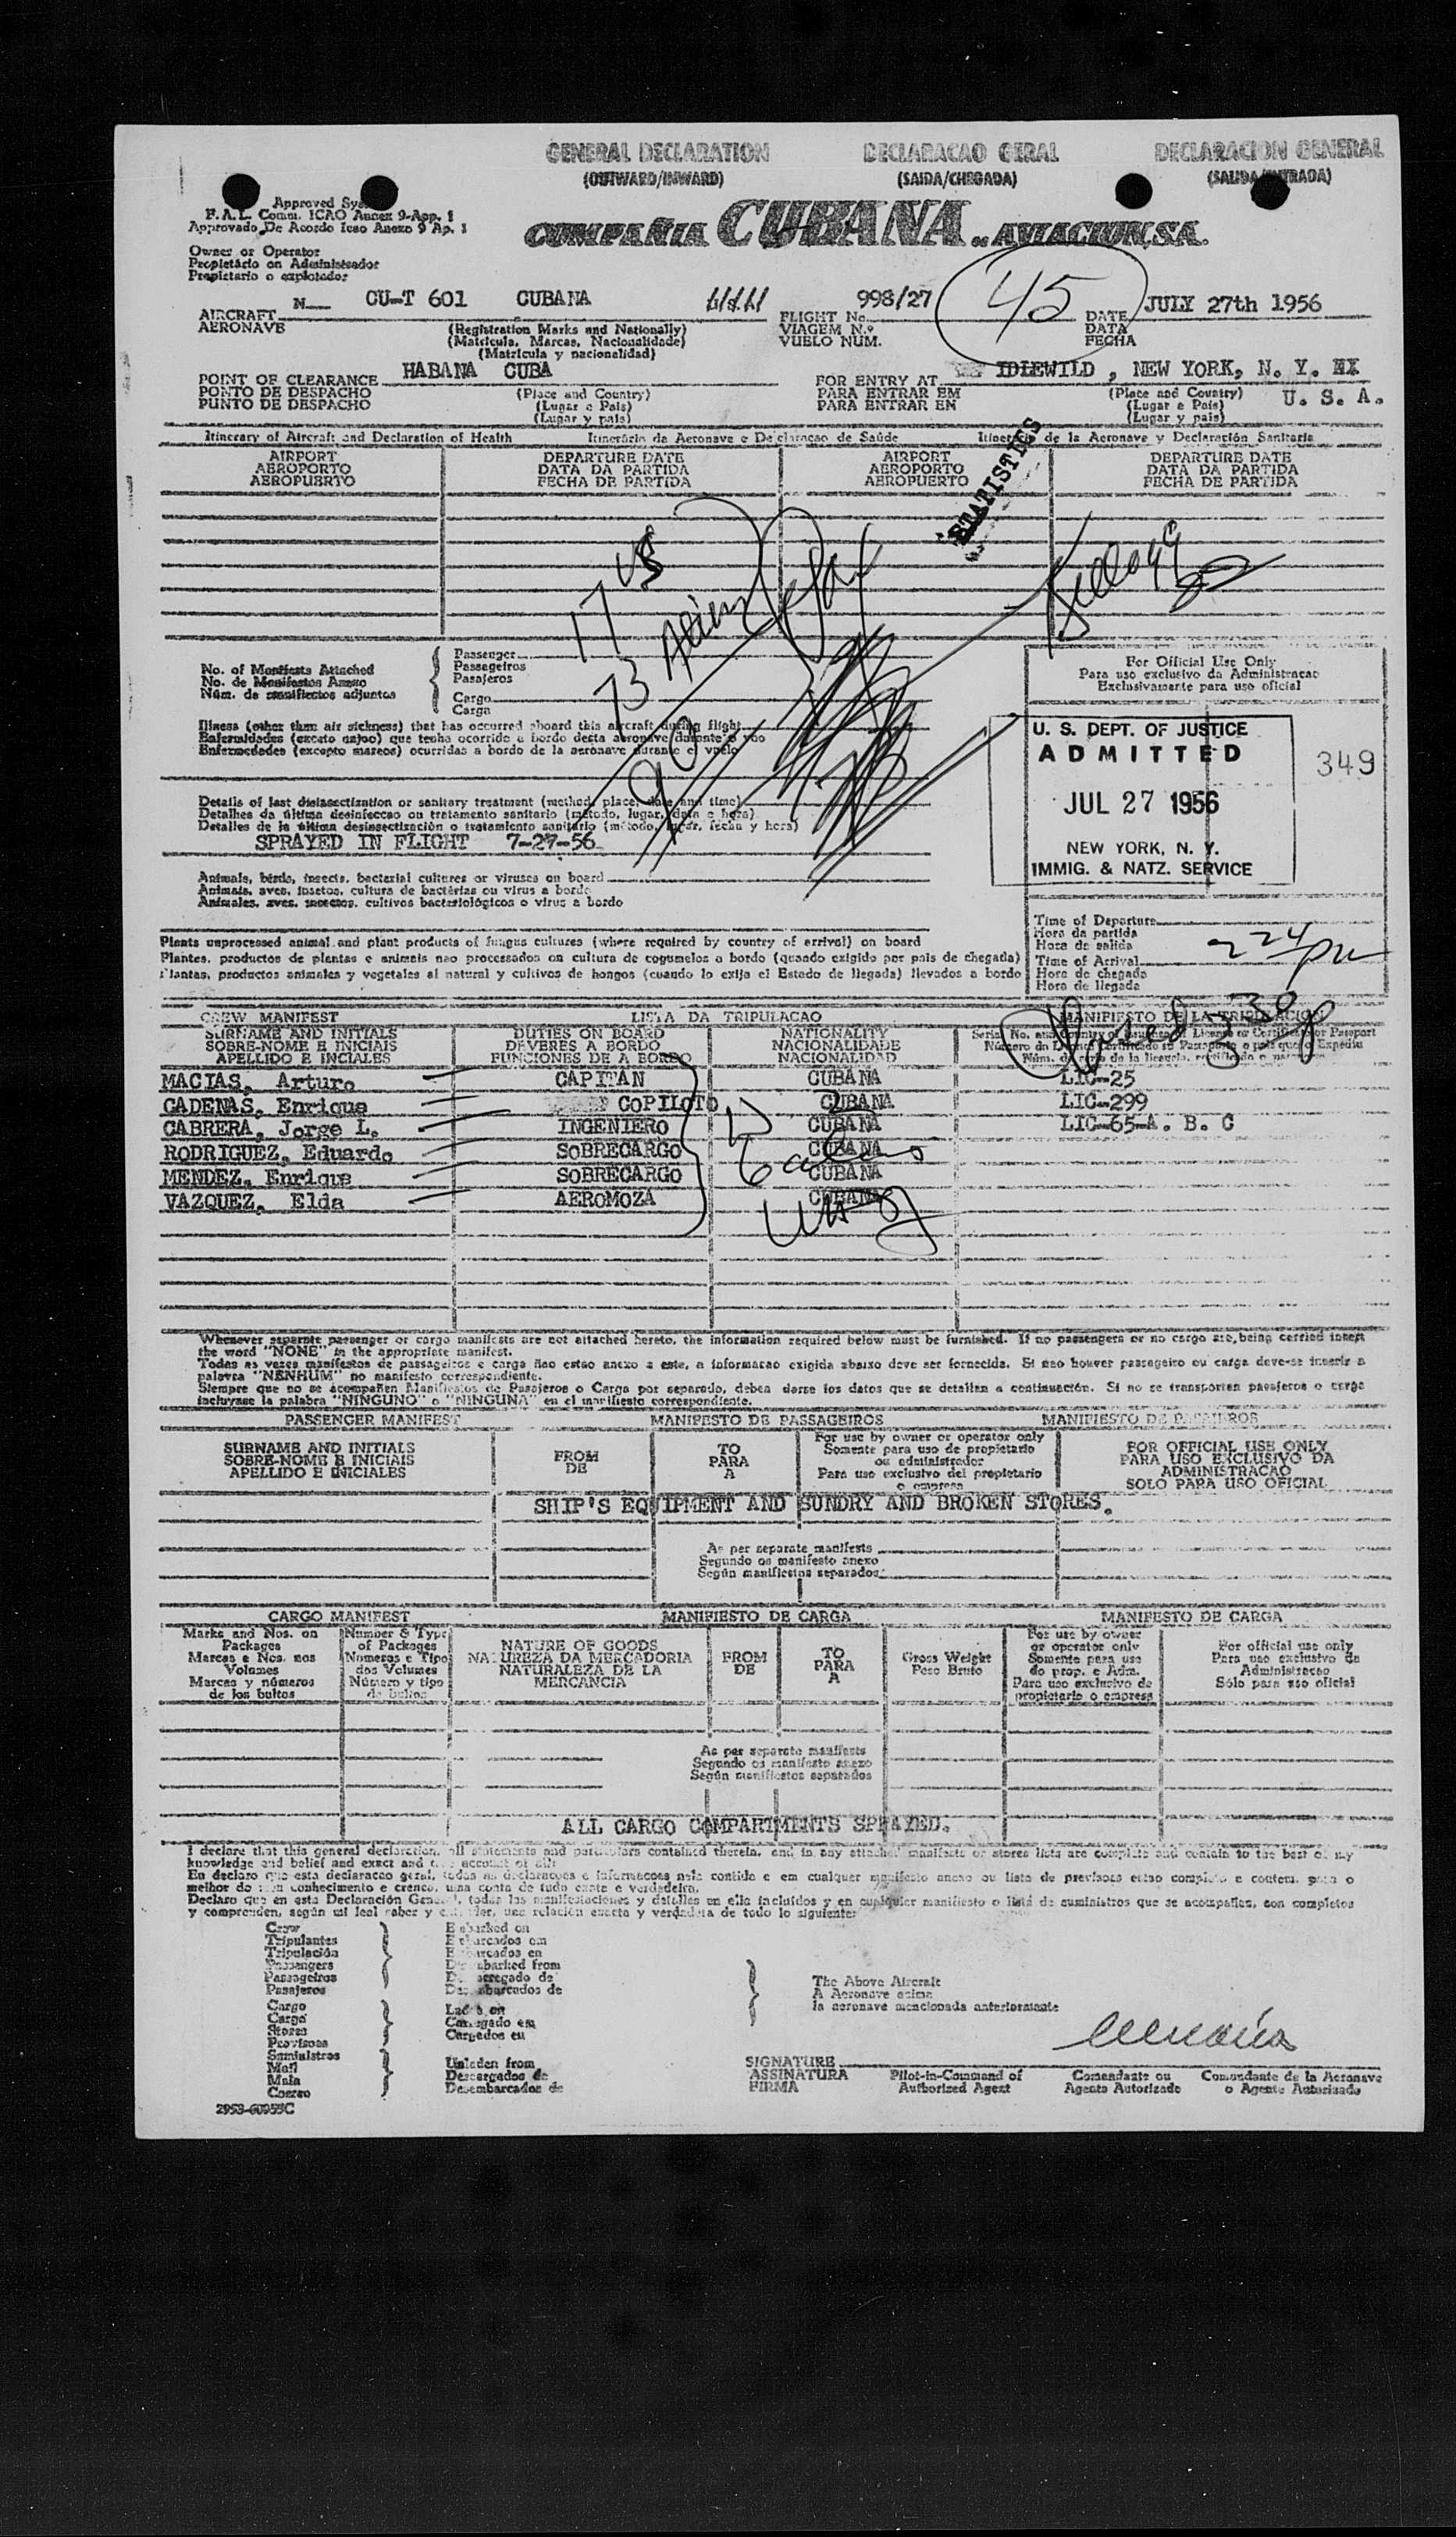 GENERAL DECLARATION DECLARACAO GERAL DECLARACION GENERAL
(OUTWARD/INWARD) (SAIDA/CHEGADA) (SALIDA/ENTRADA)
Approved
F.A.L. Comm. ICAO Annex 9-App. 1
Approvado De Acordo Icao Anexo 9 Ap. 1
COMPAÑIA CUBANA DE AVIACION, S.A.
Owner or Operator
Propietário on Administsador
Propietario o explotador
AIRCRAFT N CU-T 601 CUBANA FLIGHT No. 998/27 45 DATE JULY 27th 1956
AERONAVE (Registration Marks and Nationally) VIAGEM N.º DATA
(Matricula, Marcas, Nacionalidade) VUELO NUM. FECHA
(Matrícula y nacionalidad)
POINT OF CLEARANCE HABANA CUBA FOR ENTRY AT IDLEWILD, NEW YORK, N. Y.
PONTO DE DESPACHO (Place and Country) PARA ENTRAR EM (Place and Country) U. S. A.
PUNTO DE DESPACHO (Lugar e Pais) PARA ENTRAR EN (Lugar e Pais)
(Lugar y pais) (Lugar y pais)
Itinerary of Aircraft and Declaration of Health Itinerário da Aeronave e Declaracao de Saúde de la Aeronave y Declaración Sanitaria
AIRPORT DEPARTURE DATE AIRPORT DEPARTURE DATE
AEROPORTO DATA DA PARTIDA AEROPORTO DATA DA PARTIDA
AEROPUERTO FECHA DE PARTIDA AEROPUERTO FECHA DE PARTIDA
STATISTICS
17 US
73 Alien
90
No. of Manifests Attached Passenger
No. de Manifestos Anexo Passageiros
Núm. de manifiectos adjuntos Pasajeros
Cargo
Carga
For Official Use Only
Para uso exclusivo da Administracao
Exclusivamente para uso oficial
Illness (other than air sickness) that has occurred aboard this aircraft during flight
Enfermidades (exceto enjoo) que tenha ocorrido a bordo desta aeronave durante o voo
Enfermedades (excepto mareos) ocurridas a bordo de la aeronave durante el vuelo
U. S. DEPT. OF JUSTICE
ADMITTED
JUL 27 1956
NEW YORK, N. Y.
IMMIG. & NATZ. SERVICE
349
Details of last disinsectization or sanitary treatment (method, place, date and time)
Detalhes da última desinfeccao ou tratamento sanitario (método, lugar, data e hora)
Detalles de la última desinsectización o tratamiento sanitario (método, lugar, fecha y hora)
SPRAYED IN FLIGHT 7-27-56
Animals, birds, insects, bacterial cultures or viruses on board
Animais, aves, insetos, cultura de bactérias ou virus a bordo
Animales, aves, insectos, cultivos bacteriológicos o virus a bordo
Plants unprocessed animal and plant products of fungus cultures (where required by country of arrival) on board
Plantes, productos de plantas e animais nao processados ou cultura de cogumelos a bordo (quando exigido por pais de chegada)
Plantas, productos animales y vegetales al natural y cultivos de hongos (cuando lo exija el Estado de llegada) llevados a bordo
Time of Departure
Hora da partida
Hora de salida
Time of Arrival 2 24 pm
Hora de chegada
Hora de llegada
CREW MANIFEST LISTA DA TRIPULACAO MANIFIESTO DE LA TRIPULACION
SURNAME AND INITIALS DUTIES ON BOARD NATIONALITY
SOBRE-NOME E INICIAIS DEVERES A BORDO NACIONALIDADE
APELLIDO E INCIALES FUNCIONES DE A BORDO NACIONALIDAD
MACIAS, Arturo CAPITAN CUBANA LIC-25
CADENAS, Enrique COPILOTO CUBANA LIC-299
CABRERA, Jorge L. INGENIERO CUBANA LIC-65-A. B. C
RODRIGUEZ, Eduardo SOBRECARGO CUBANA
MENDEZ, Enrique SOBRECARGO CUBANA
VAZQUEZ, Elda AEROMOZA CUBANA
Whenever separate passenger or cargo manifests are not attached hereto, the information required below must be furnished. If no passengers or no cargo are, being carried insert
the word "NONE" in the appropriate manifest.
Todas as vezes manifestos de passageiros e carga nao estao anexo a este, a informacao exigida abaixo deve ser fornecida. Si nao houver passageiro ou carga deve-se inserir a
palavra "NENHUM" no manifesto correspondiente.
Siempre que no se acompañen Manifiestos de Pasajeros o Carga por separado, deben darse los datos que se detallan a continuación. Si no se transporten pasajeros o carga
incluyase la palabra "NINGUNO" o "NINGUNA" en el manifiesto correspondiente.
PASSENGER MANIFEST MANIFESTO DE PASSAGEIROS MANIFIESTO DE PASAJEROS
SURNAME AND INITIALS FROM TO For use by owner or operator only FOR OFFICIAL USE ONLY
SOBRE-NOME E INICIAIS DE PARA Somente para uso de propietario PARA USO EXCLUSIVO DA
APELLIDO E INICIALES A ou administrador ADMINISTRACAO
Para uso exclusivo del propietario SOLO PARA USO OFICIAL
o empresa
SHIP'S EQUIPMENT AND SUNDRY AND BROKEN STORES.
As per separate manifests
Segundo os manifesto anexo
Según manifiestos separados
CARGO MANIFEST MANIFIESTO DE CARGA MANIFESTO DE CARGA
Marks and Nos. on Packages Number & Type of Packages NATURE OF GOODS FROM TO Gross Weight For use by owner or operator only For official use only
Marcas e Nos. nos Volumes Numeros e Tipo dos Volumes NATUREZA DA MERCADORIA DE PARA Peso Bruto Somente para uso do prop. e Adm. Para uso exclusivo da Administracao
Marcas y números de los bultos Número y tipo de bultos NATURALEZA DE LA MERCANCIA A Para uso exclusivo de propietario o empresa Sólo para uso oficial
As per separate manifests
Segundo os manifesto anexo
Según manifiestos separados
ALL CARGO COMPARTMENTS SPRAYED.
I declare that this general declaration, all statements and particulars contained therein, and in any attached manifests or stores lists are complete and contain to the best of my
knowledge and belief and exact and
En declaro que esta declaracao geral, todas as declaracoes e informacoes nele contido e em cualquer manifesto anexo ou lista de provisoes estao completo e contem, para o
melhor do conhecimento e crenca, uma conta de tudo exato e verdadeira.
Declaro que en esta Declaración General, todas las manifestaciones y detalles en ella incluidos y en cualquier manifiesto o lista de suministros que se acompañen, son completos
y comprenden, según mi leal saber y entender, una relación exacta y verdadera de todo lo siguiente:
Crew Embarked on
Tripulantes Embarcados em
Tripulación Embarcados en
Passengers Disembarked from
Passageiros
Pasajeros Desembarcados de
The Above Aircraft
A Aeronave acima
la aeronave mencionada anteriormente
Cargo
Carga
Stores
Provisoes
Suministros
Mail
Mala
Correo
Carregado em
Cargados en
Unladen from
Descargados de
Desembarcados de
SIGNATURE
ASSINATURA Pilot-in-Command of Comandante ou Comandante de la Aeronave
FIRMA Authorized Agent Agente Autorizado o Agente Autorizado
2953-60953C